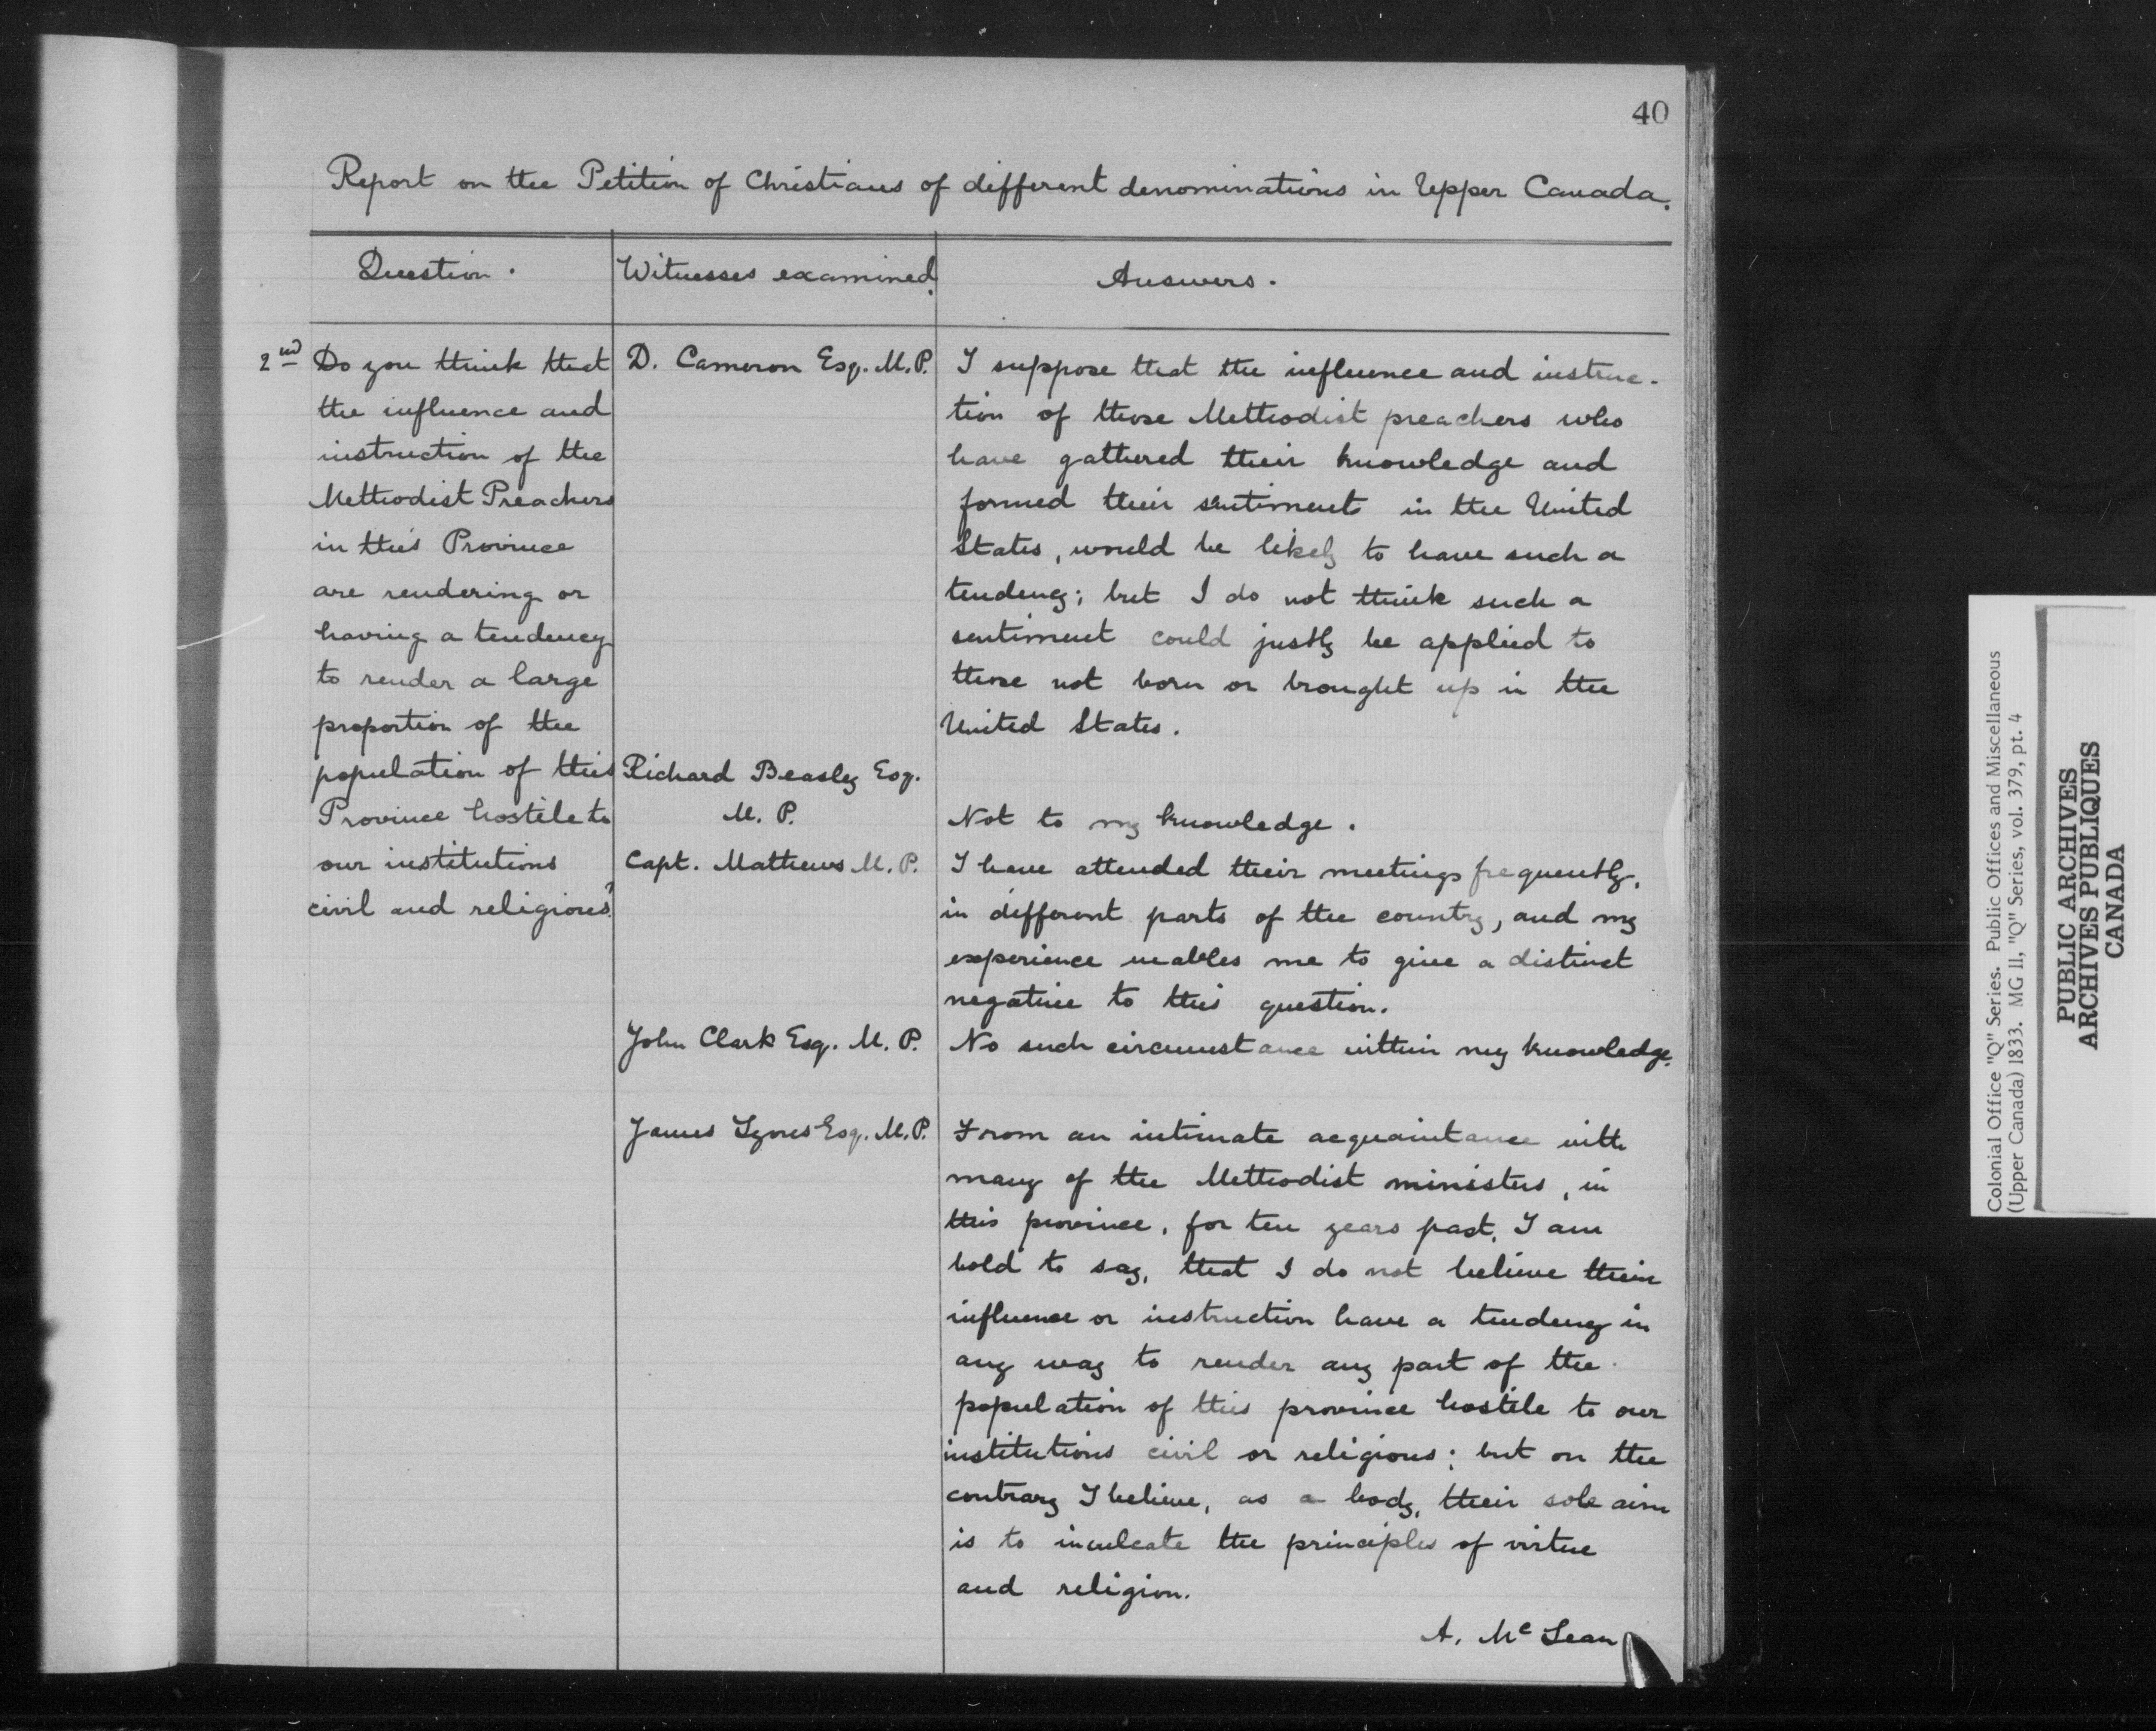 40
Report on the Petition of Christians of different denominations in Upper Canada.
Question.
Witnesses examined.
Answers.
2nd Do you think that
the influence and
instruction of the
Methodist Preachers
in this Province
are rendering or
having a tendency
to render a large
proportion of the
population of this
Province hostile to
our institutions
civil and religious?
D. Cameron Esq. M.P.
I suppose that the influence and instruc-
tion of those Methodist preachers who
have gathered their knowledge and
formed their sentiments in the United
States, would be likely to have such a
tendency; but I do not think such a
sentiment could justly be applied to
those not born or brought up in the
United States.
Richard Beasley Esq.
M. P.
Not to my knowledge.
Capt. Mathews M. P.
I have attended their meetings frequently,
in different parts of the country, and my
experience enables me to give a distinct
negative to this question.
John Clark Esq. M. P.
No such circumstance within my knowledge.
James Lyons Esq. M.P.
From an intimate acquaintance with
many of the Methodist ministers, in
this province, for ten years past, I am
bold to say, that I do not believe their
influence or instruction have a tendency in
any way to render any part of the
population of this province hostile to our
institutions civil or religious; but on the
contrary I believe, as a body, their sole aim
is to inculcate the principles of virtue
and religion.
A. Mc Lean
Colonial Office "Q" Series. Public Offices and Miscellaneous
(Upper Canada) 1833. MG 11, "Q" Series, vol. 379, pt. 4
PUBLIC ARCHIVES
ARCHIVES PUBLIQUES
CANADA